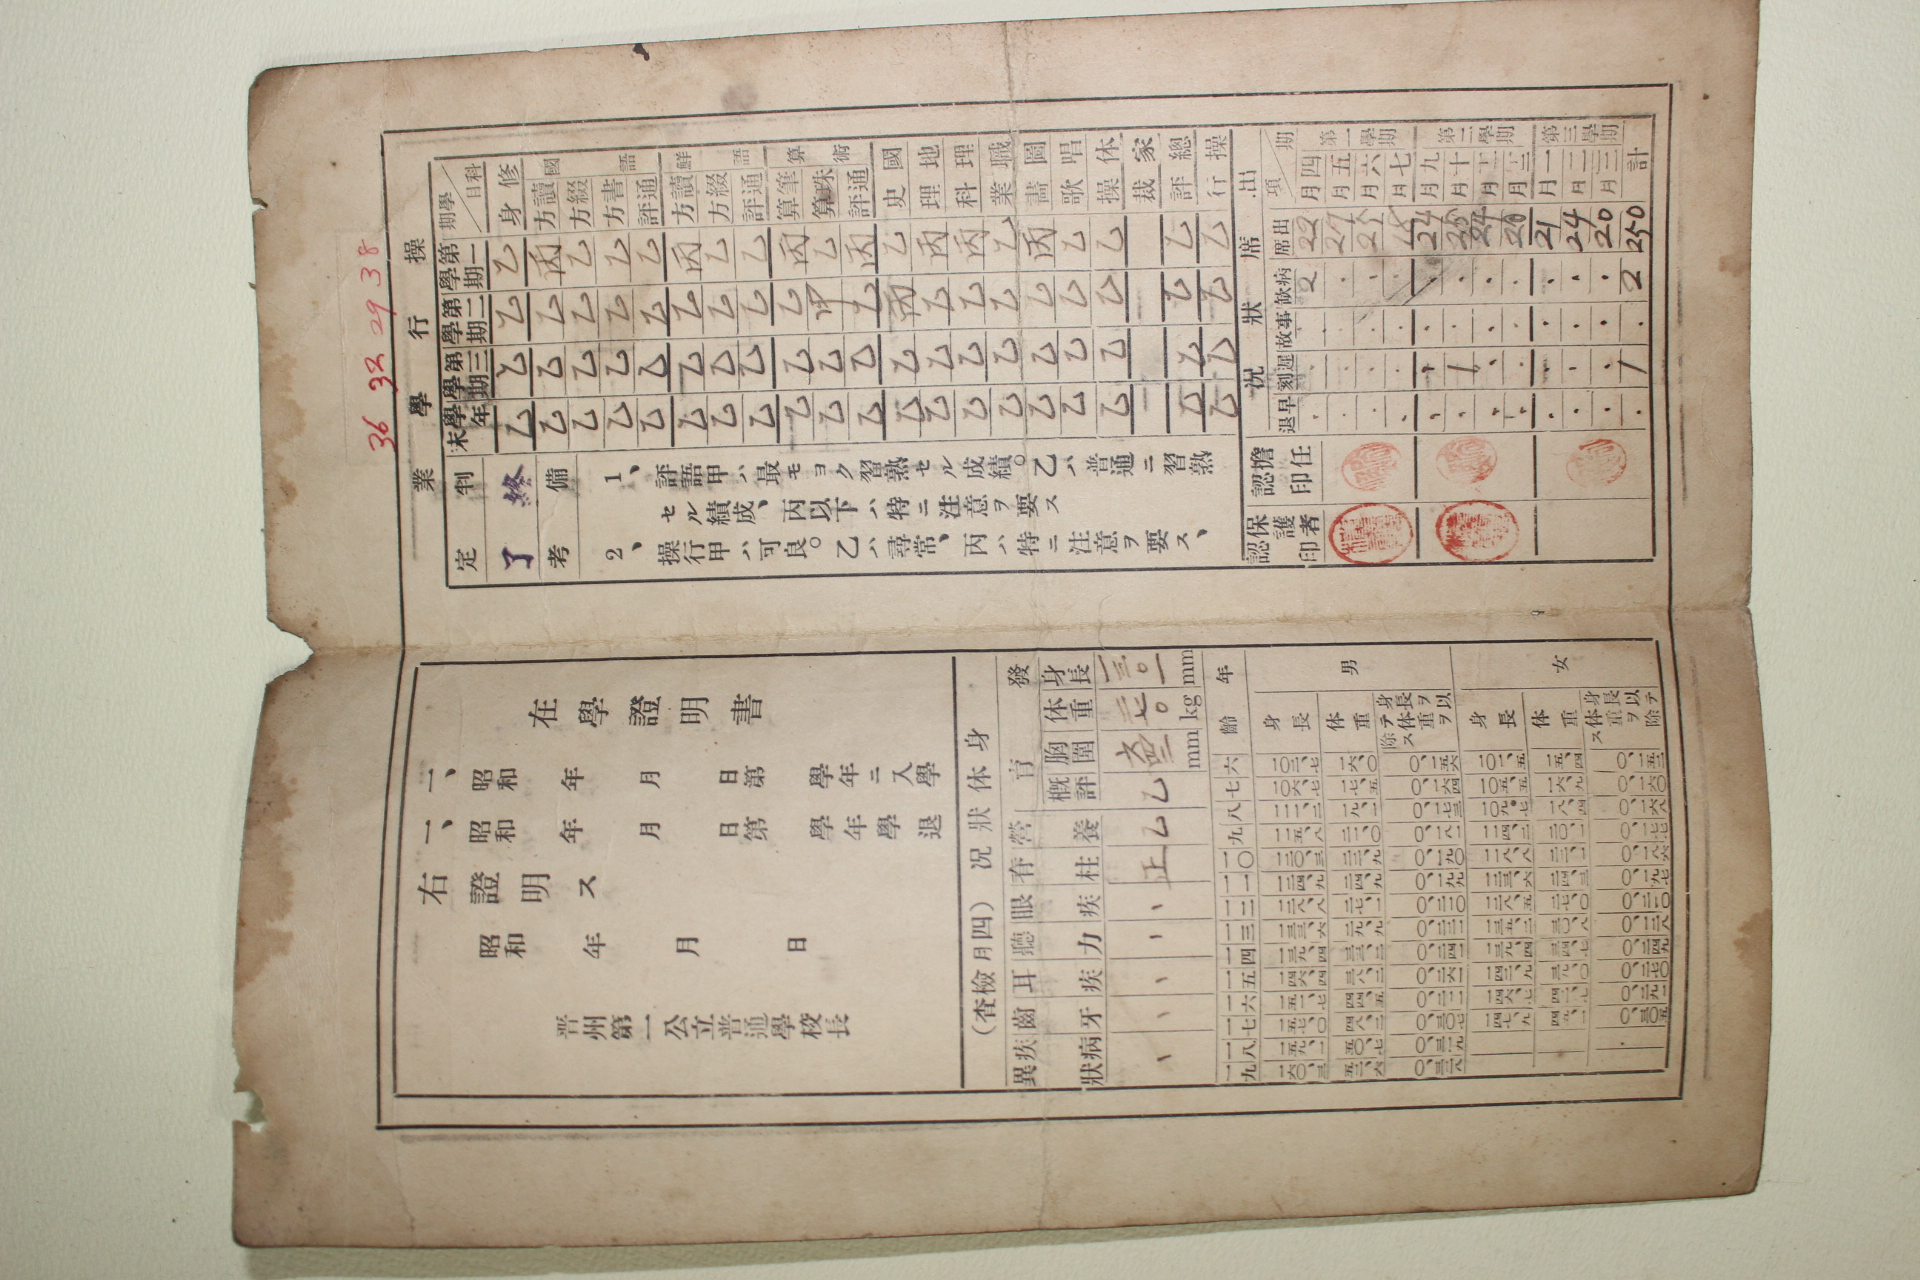 36 32 29 38
操行學業
學期／科目
第一學期
第二學期
第三學期
學年末
判定
終了
備考
國語
鮮語
算術
修身 乙 乙 乙 乙
讀方 丙 乙 乙 乙
綴方 乙 乙 乙 乙
書方 乙 乙 乙 乙
通評 乙 乙 乙 乙
讀方 丙 乙 乙 乙
綴方 乙 乙 乙 乙
通評 乙 乙 乙 乙
筆算 丙 乙 乙 乙
珠算 乙 甲 乙 乙
通評 丙 乙 乙 乙
國史 乙 丙 乙 乙
地理 丙 乙 乙 乙
理科 丙 乙 乙 乙
職業 乙 乙 乙 乙
圖畵 丙 乙 乙 乙
唱歌 乙 乙 乙 乙
体操 乙 乙 乙 乙
家裁
總評 乙 乙 乙 乙
操行 乙 乙 乙 乙
1、評語甲ハ最モヨク習熟セル成績。乙ハ普通ニ習熟
セル績成、丙以下ハ特ニ注意ヲ要ス
2、操行甲ハ可良。乙ハ尋常、丙ハ特ニ注意ヲ要ス、
出席狀況
期／項
出席 病缺 事故 遲刻 早退
擔任認印
保護者認印
第一學期
四月 22 2
五月 27
六月 25
七月 18
第二學期
九月 24
十月 25 1
十一月 24
十二月
第三學期
一月 21
二月 24
三月 20
計 250 2 . 1 .
在學證明書
一、昭和 年 月 日第 學年ニ入學
一、昭和 年 月 日第 學年學退
右證明ス
昭和 年 月 日
晋州第一公立普通學校長
身体狀况（四月檢査）
發育
身長 一三〇一 mm
体重 二七〇 kg
胸圍 六四二 mm
概評 乙
營養 乙
脊柱 正
眼疾 ヽ
聽力 ヽ
耳疾 ヽ
齒牙 ヽ
疾病異狀 ヽ
年齡 六 七 八 九 一〇 一一 一二 一三 一四 一五 一六 一七 一八 一九
男
身長 一〇二、七 一〇六、七 一一一、二 一一五、八 一二〇、三 一二四、九 一二八、八 一三三、六 一三九、四 一四六、四 一五一、七 一五七、〇 一五九、一 一六〇、三
体重 一六、〇 一七、五 一九、一 二一、〇 二二、九 二四、九 二七、一 二九、九 三三、二 三八、二 四四、五 四八、二 五〇、七 五二、六
身長ヲ以テ体重ヲ除ス 〇、一五六 〇、一六四 〇、一七三 〇、一八二 〇、一九〇 〇、一九九 〇、二一〇 〇、二二一 〇、二四一 〇、二六一 〇、三〇七 〇、三一九 〇、三二八
女
身長 一〇一、五 一〇五、五 一〇九、七 一一四、二 一一八、八 一二三、六 一二八、五 一三五、二 一三九、四 一四二、九 一四六、七 一四七、九
体重 一五、四 一六、九 一八、四 二〇、一 二二、一 二四、三 二七、〇 三〇、八 三四、七 三九、〇 四二、七 四五、一
身長以テ体重ヲ除ス 〇、一五二 〇、一六〇 〇、一六八 〇、一七七 〇、一八六 〇、一九七 〇、二一〇 〇、二四九 〇、二七〇 〇、二九一 〇、三〇五